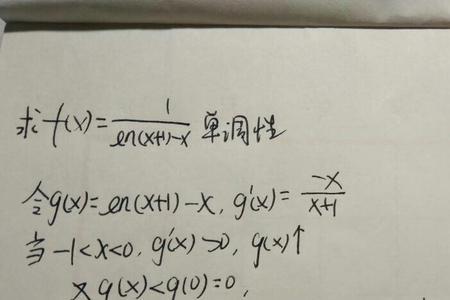 求f(x)=1/ln(x+1)-x 单调性
令g(x)=ln(x+1)-x, g'(x)=-x/x+1
当-1<x<0, g'(x)>0, g(x)↑
又g(x)<g(0)=0,